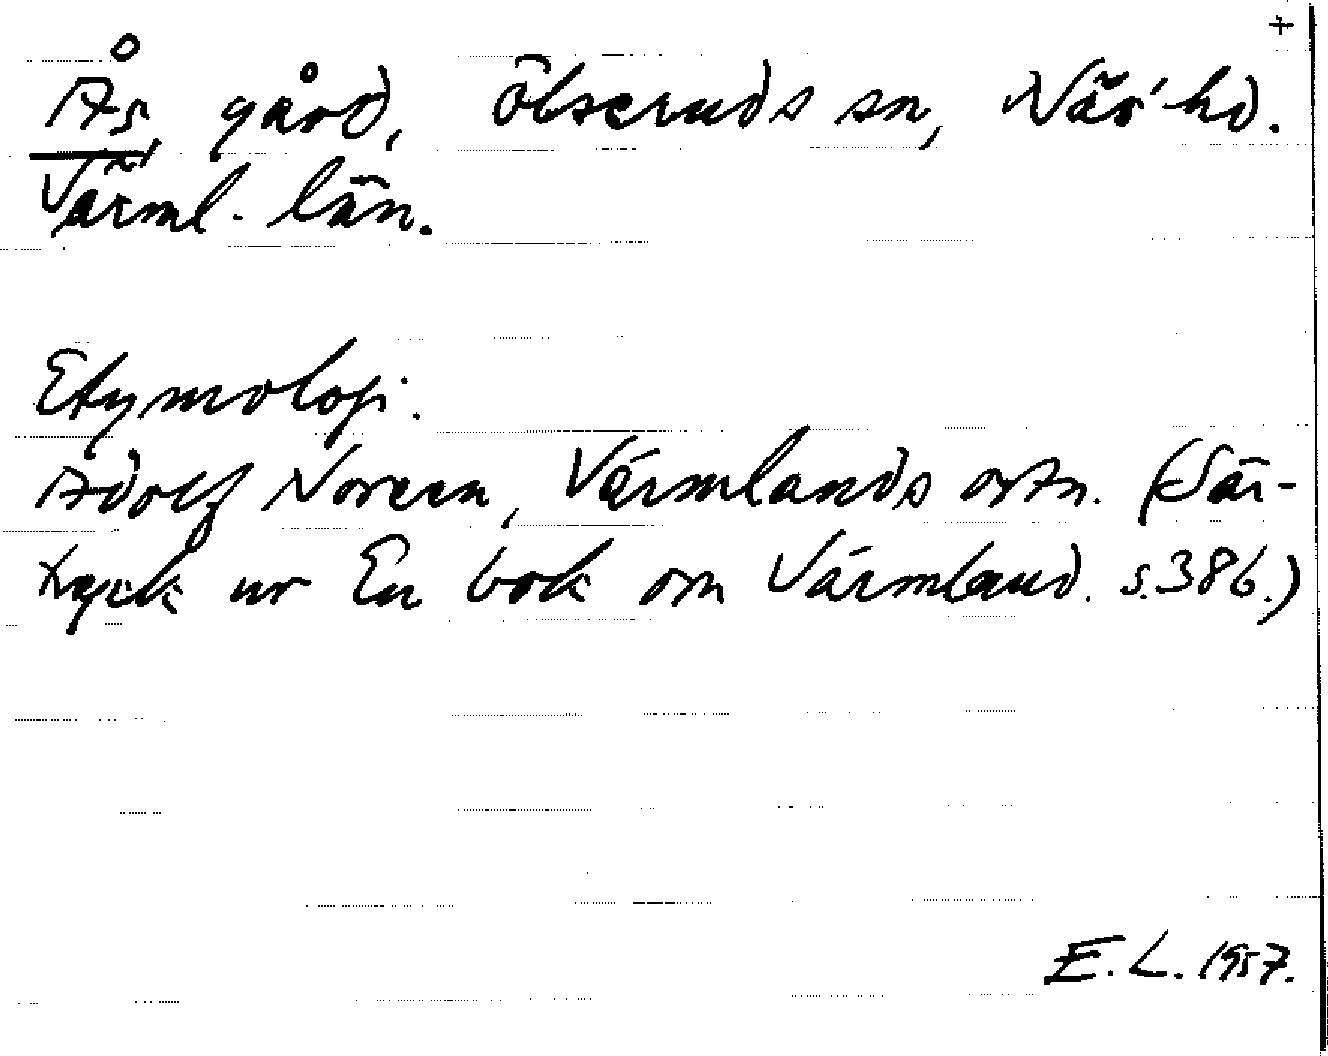 +
Ås, gård, Ölseruds sn, Näs' hd.
Värml. län.
Etymologi:
Adolf Noreen, Värmlands ortn. (Sär-
tryck ur En bok om Värmland. s. 386.)
E. L. 1957.